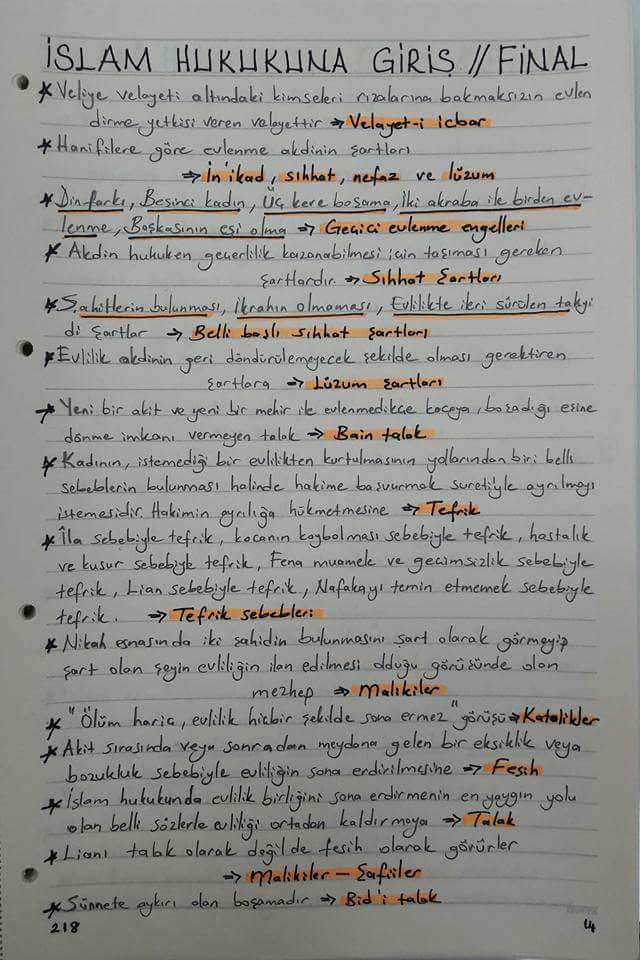 İSLAM HUKUKUNA GİRİŞ // FİNAL
* Veliye velayeti altındaki kimseleri rızalarına bakmaksızın evlen
dirme yetkisi veren velayettir → Velayet-i icbar
* Hanifilere göre evlenme akdinin şartları
⇒ İn'ikad, sıhhat, nefaz ve lüzum
* Din farkı, Beşinci kadın, Üç kere boşama, İki akraba ile birden ev-
lenme, Başkasının eşi olma ⇒ Geçici evlenme engelleri
* Akdin hukuken geçerlilik kazanabilmesi için taşıması gereken
şartlardır. ⇒ Sıhhat Şartları
* Şahitlerin bulunması, İkrahın olmaması, Evlilikte ileri sürülen takyi
di şartlar ⇒ Belli başlı sıhhat şartları
* Evlilik akdinin geri döndürülemeyecek şekilde olması gerektiren
şartlara ⇒ Lüzum Şartları
* Yeni bir akit ve yeni bir mehir ile evlenmedikçe kocaya, boşadığı eşine
dönme imkanı vermeyen talak ⇒ Bain talak
* Kadının, istemediği bir evlilikten kurtulmasının yollarından biri belli
sebeblerin bulunması halinde hakime başvurmak suretiyle ayrılmayı
istemesidir. Hakimin ayrılığa hükmetmesine ⇒ Tefrik
* İla sebebiyle tefrik, kocanın kaybolması sebebiyle tefrik, hastalık
ve kusur sebebiyle tefrik, Fena muamele ve geçimsizlik sebebiyle
tefrik, Lian sebebiyle tefrik, Nafakayı temin etmemek sebebiyle
tefrik. ⇒ Tefrik sebebleri
* Nikah esnasında iki şahidin bulunmasını şart olarak görmeyip
şart olan şeyin evliliğin ilan edilmesi olduğu görüşünde olan
mezhep ⇒ Malikiler
* "Ölüm hariç, evlilik hiçbir şekilde sona ermez" görüşü ⇒ Katolikler
* Akit sırasında veya sonradan meydana gelen bir eksiklik veya
bozukluk sebebiyle evliliğin sona erdirilmesine ⇒ Fesih
* İslam hukukunda evlilik birliğini sona erdirmenin en yaygın yolu
olan belli sözlerle evliliği ortadan kaldırmaya ⇒ Talak
* Lianı talak olarak değil de fesih olarak görürler
⇒ Malikiler – Şafiiler
* Sünnete aykırı olan boşamadır ⇒ Bid'i talak
218 14